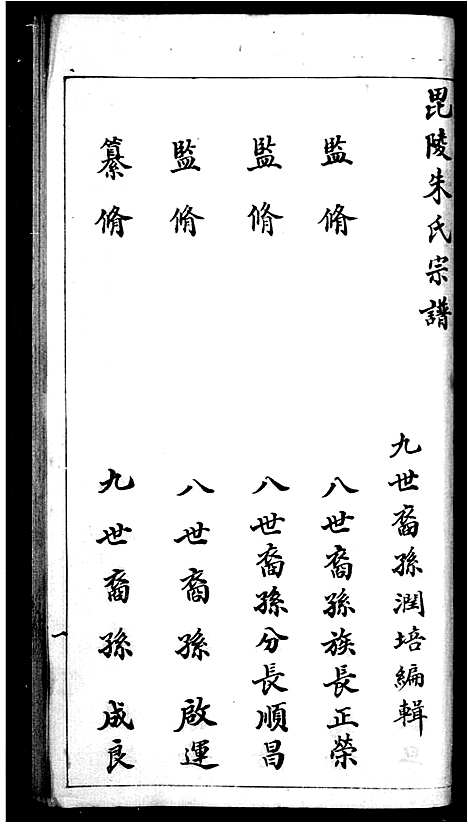 毘陵朱氏宗譜
九世裔孫潤培編輯
監脩 八世裔孫族長正榮
監脩 八世裔孫分長順昌
監脩 八世裔孫 啟運
纂脩 九世裔孫 成良
一